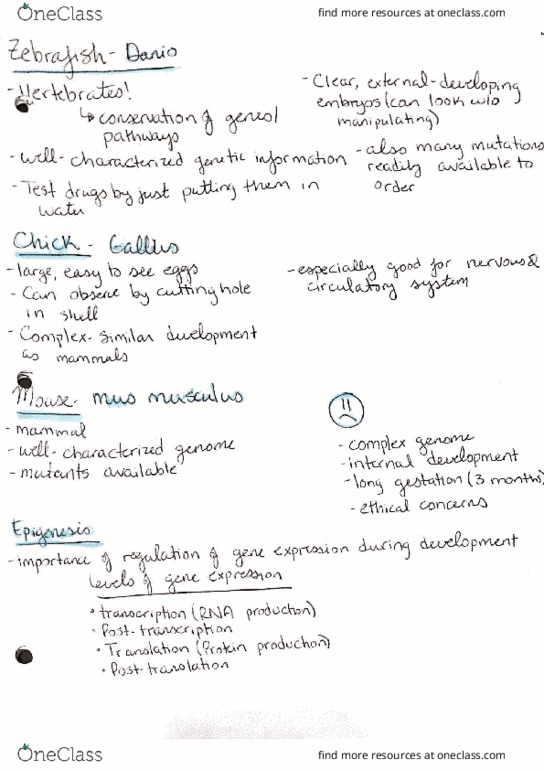 OneClass
find more resources at oneclass.com
Zebrafish - Danio
- Vertebrates!
↳ conservation of genes/
pathways
- well-characterized genetic information
- Test drugs by just putting them in
water
- Clear, external-developing
embryos (can look w/o
manipulating)
- also many mutations
readily available to
order
Chick - Gallus
- large, easy to see eggs
- Can observe by cutting hole
in shell
- Complex - similar development
as mammals
- especially good for nervous &
circulatory system
Mouse - mus musculus
- mammal
- well-characterized genome
- mutants available
- complex genome
- internal development
- long gestation (3 months)
- ethical concerns
Epigenesis
- importance of regulation of gene expression during development
levels of gene expression
• transcription (RNA production)
• Post-transcription
• Translation (Protein production)
• Post-translation
OneClass
find more resources at oneclass.com